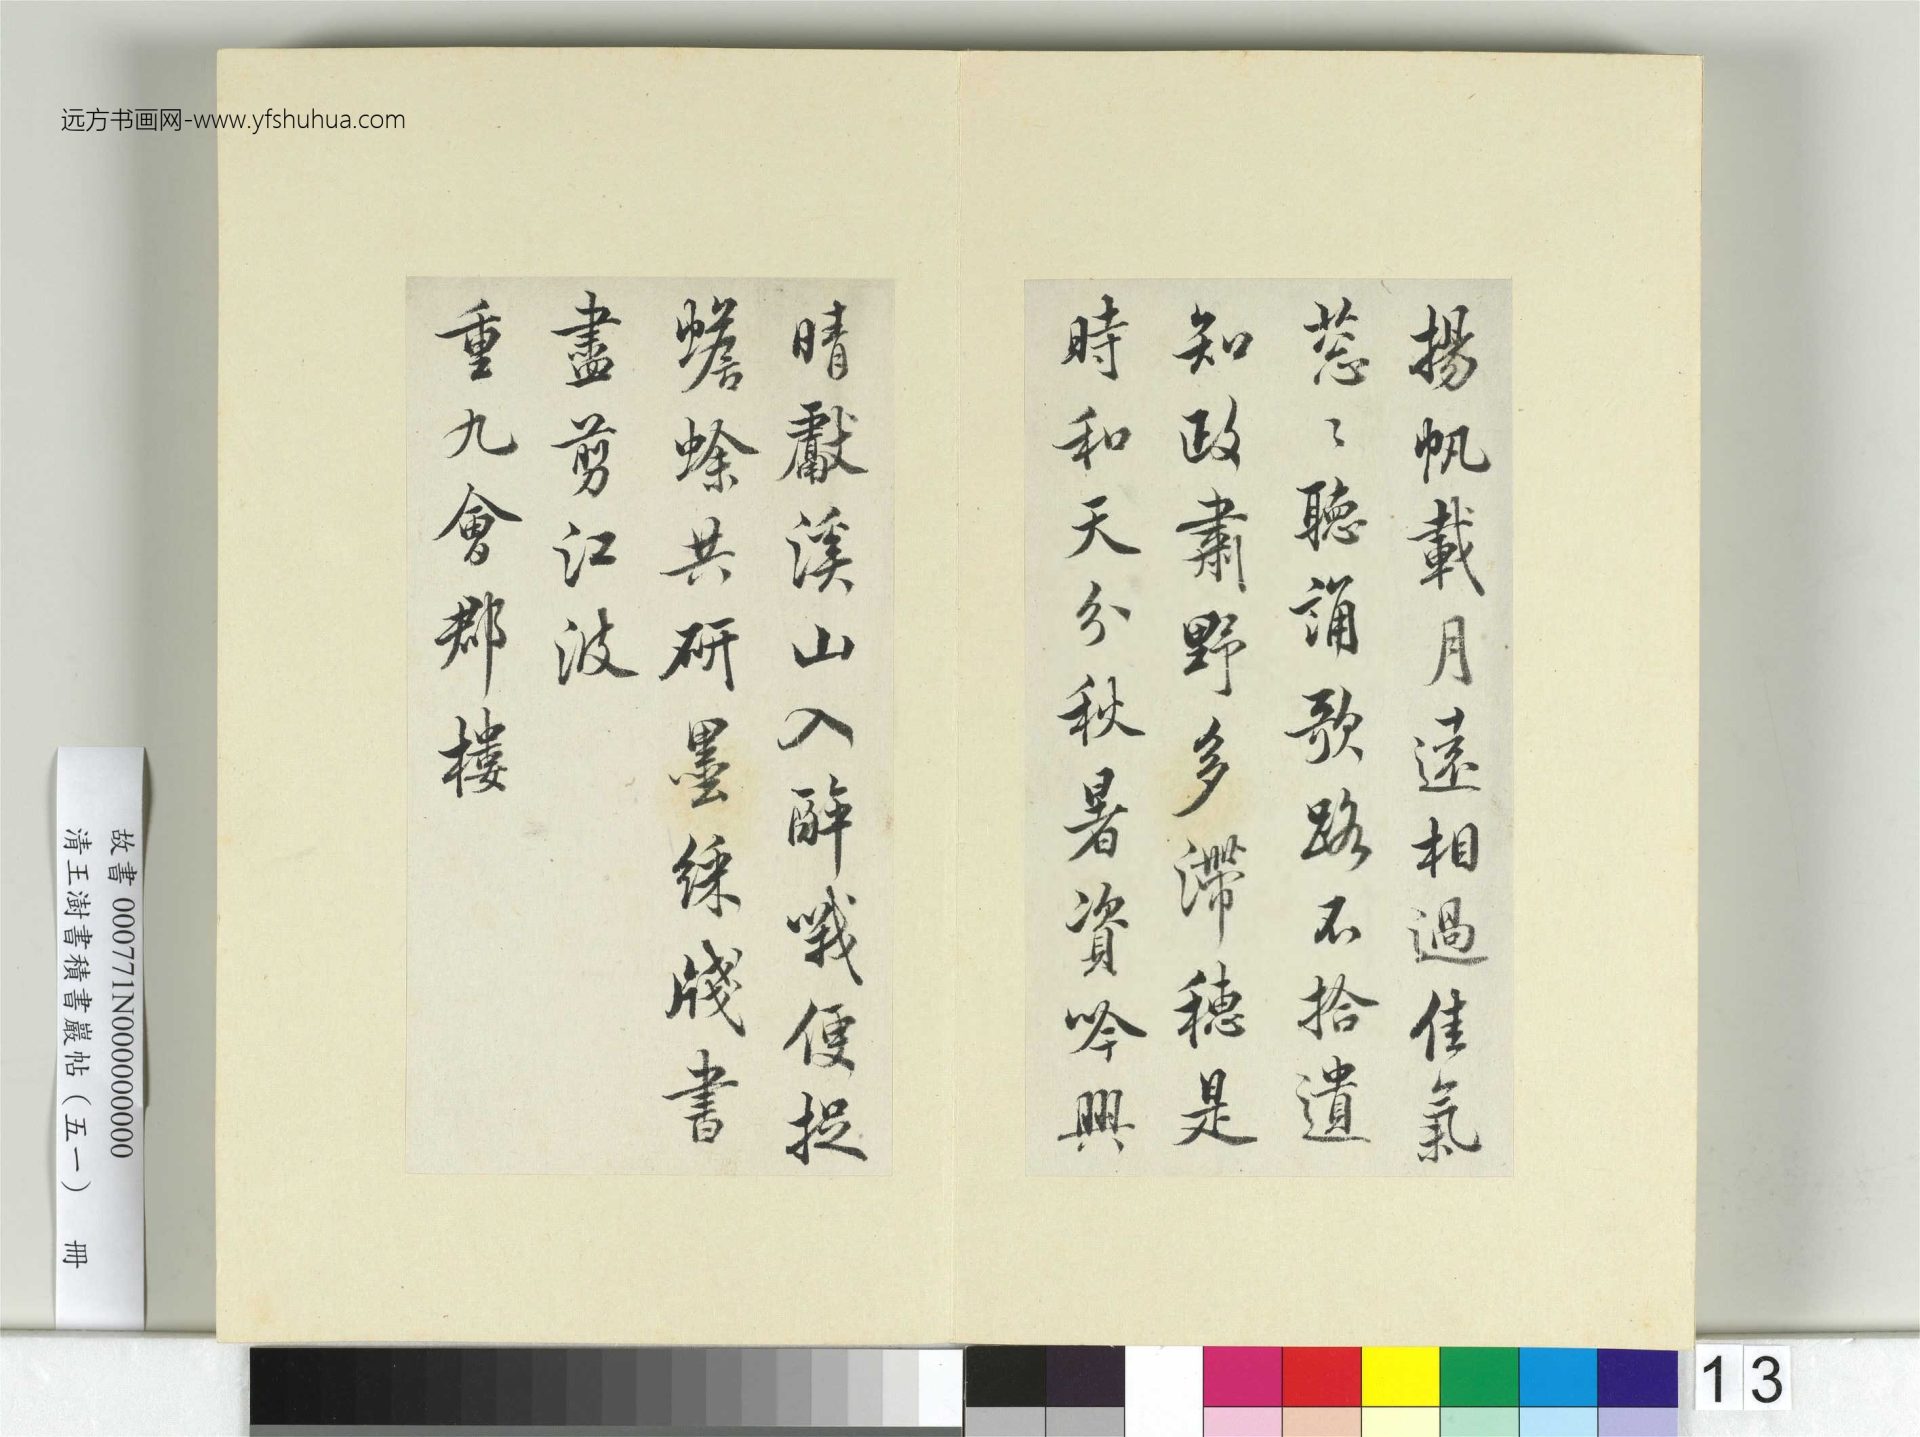 远方书画网-www.yfshuhua.com
揚帆載月遠相過佳氣
蔥〻聽誦歌路不拾遺
知政肅野多滯穗是
時和天分秋暑資吟興
晴獻溪山入醉哦便捉
蟾蜍共研墨綵牋書
盡剪江波
重九會郡樓
故書 000771N000000000
清王澍書積書巖帖（五一） 冊
13